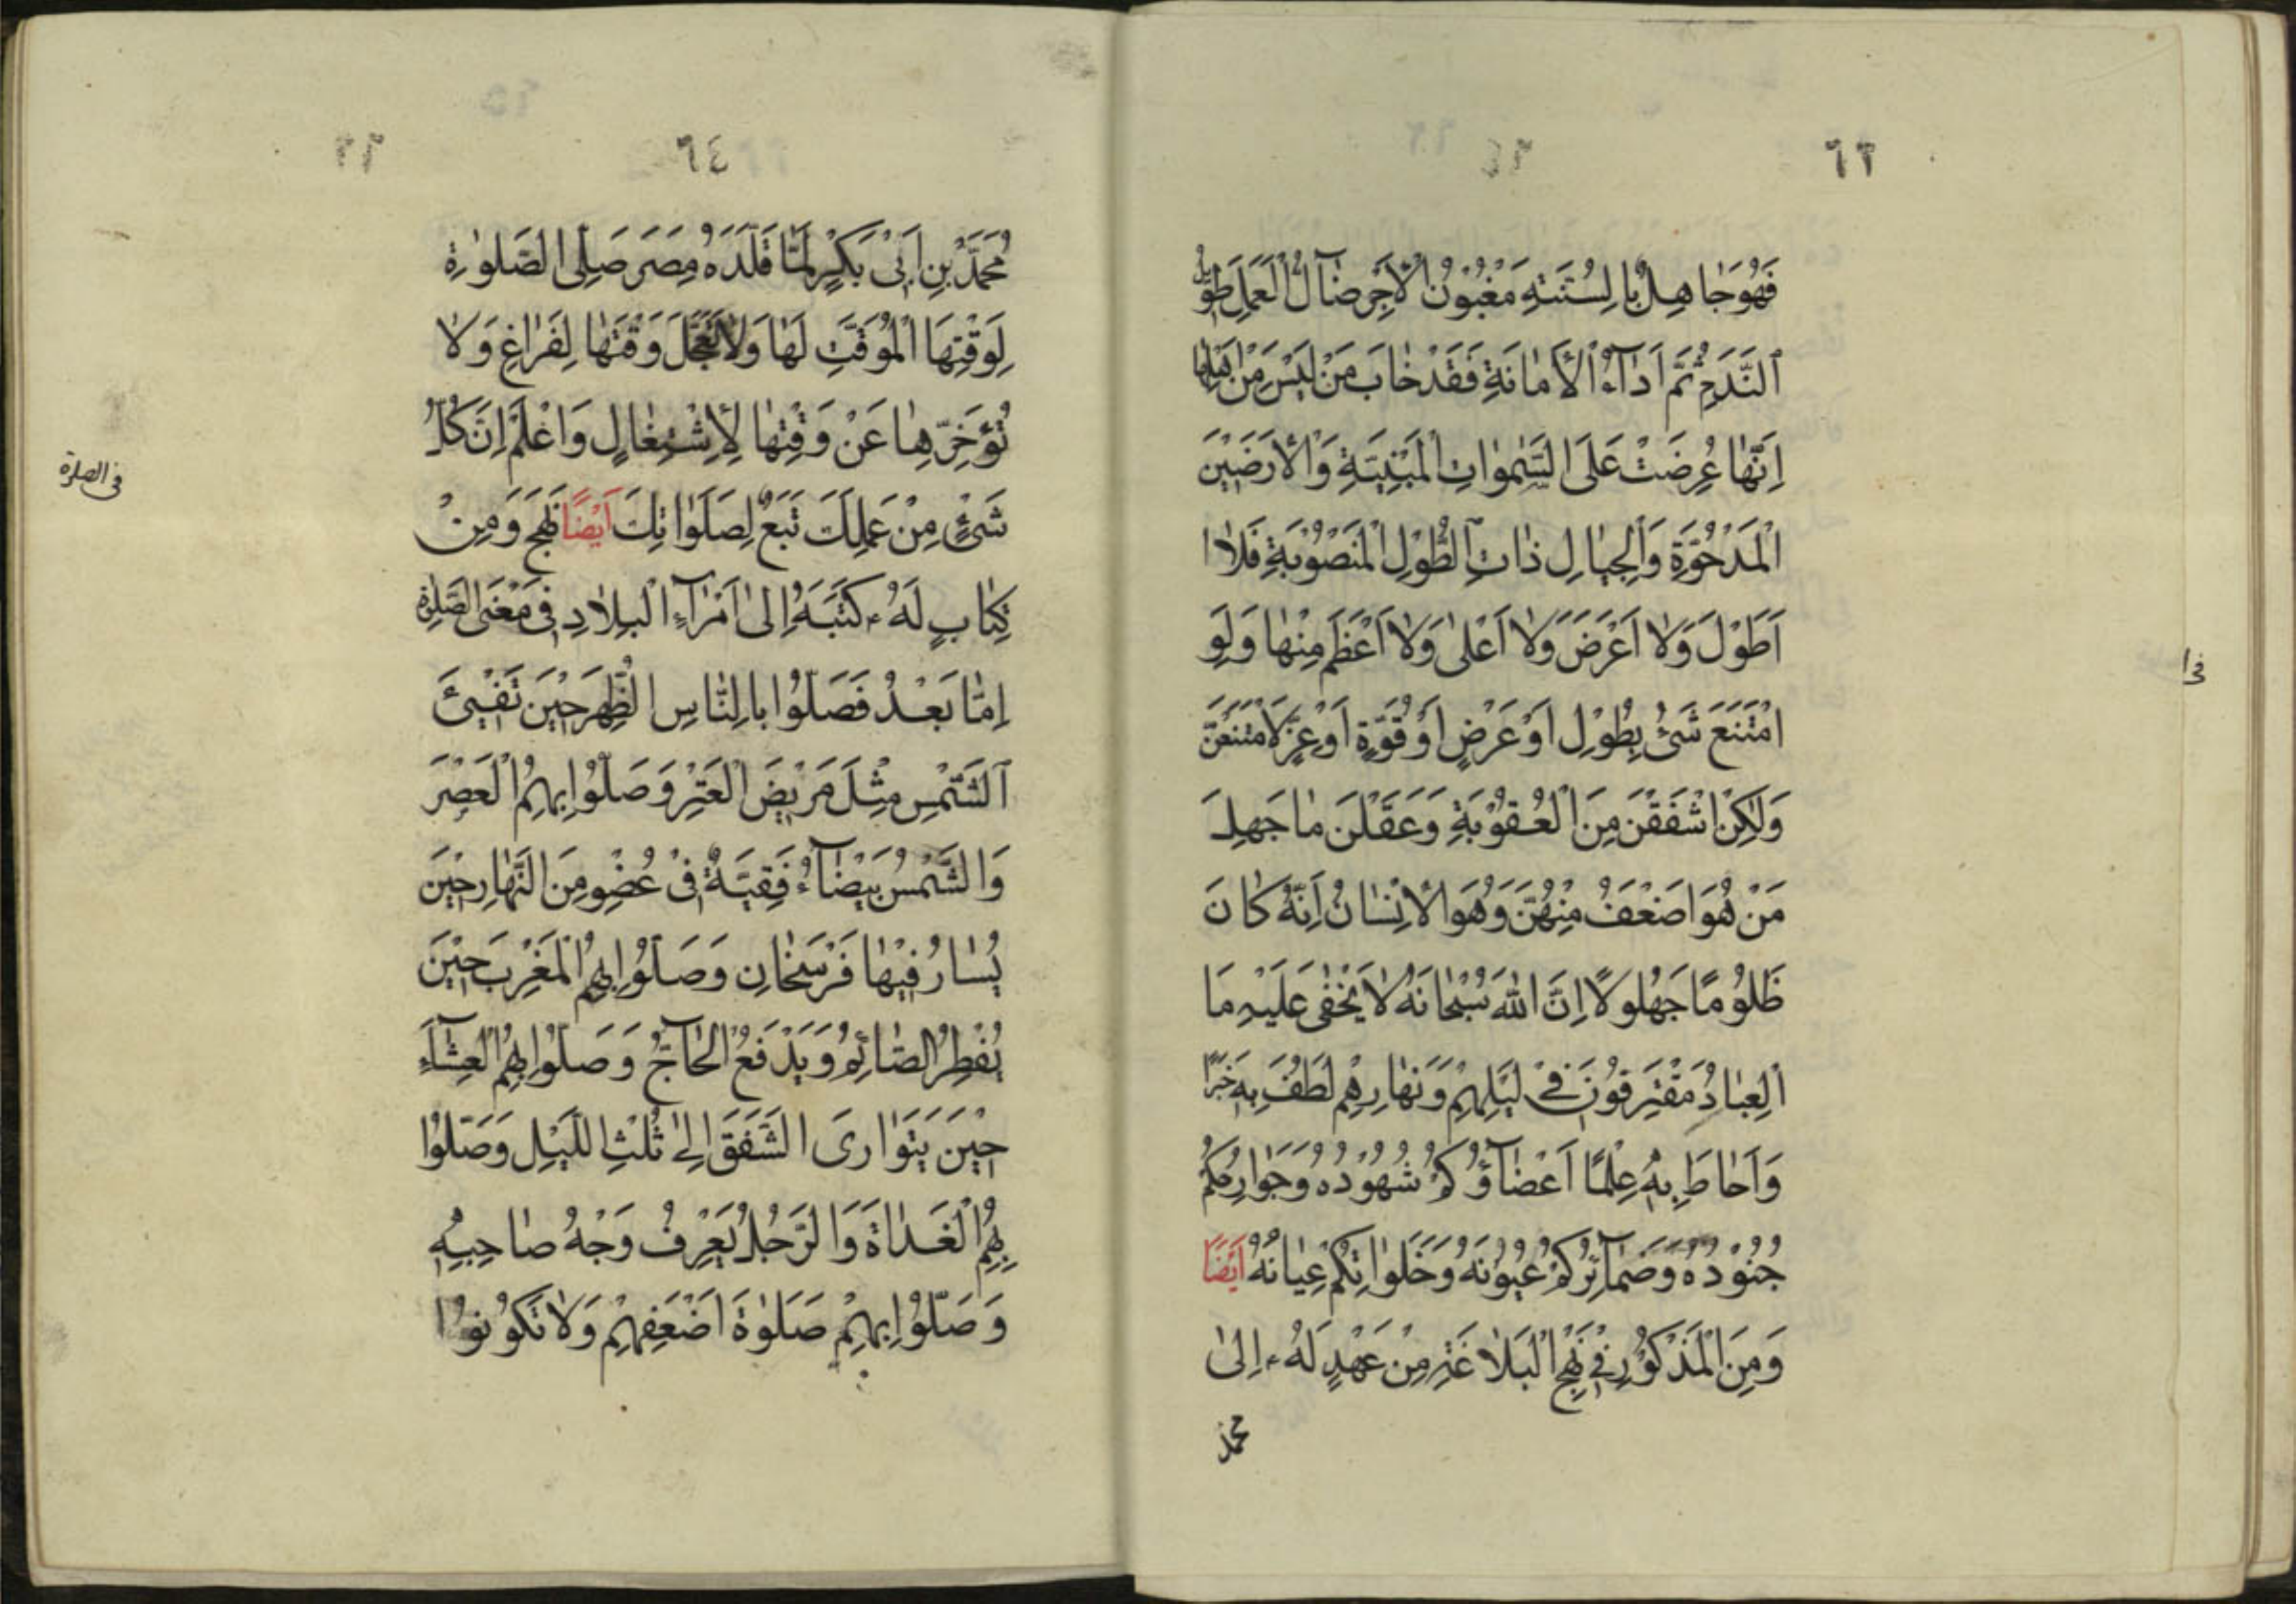 ٦٢
فَهُوَ جَاهِلٌ بِالسُّنَّةِ مَغْبُونُ الْأَجْرِ ضَآلُّ الْعَمَلِ طَوِيلُ
النَّدَمِ ثُمَّ اَدَآءُ الْأَمَانَةِ فَقَدْ خَابَ مَنْ لَيْسَ مِنْ اَهْلِهَا
اِنَّهَا عُرِضَتْ عَلَى السَّمٰوَاتِ الْمَبْنِيَّةِ وَالْأَرَضِيْنَ
الْمَدْحُوَّةِ وَالْجِبَالِ ذَاتِ الطُّوْلِ الْمَنْصُوْبَةِ فَلَا
اَطْوَلَ وَلَا اَعْرَضَ وَلَا اَعْلٰى وَلَا اَعْظَمَ مِنْهَا وَلَوِ
امْتَنَعَ شَئٌ بِطُوْلٍ اَوْ عَرْضٍ اَوْ قُوَّةٍ اَوْ عِزٍّ لَامْتَنَعْنَ
وَلٰكِنْ اَشْفَقْنَ مِنَ الْعُقُوْبَةِ وَعَقَلْنَ مَا جَهِلَ
مَنْ هُوَ اَضْعَفُ مِنْهُنَّ وَهُوَ الْأِنْسَانُ اِنَّهُ كَانَ
ظَلُوْمًا جَهُوْلًا اِنَّ اللهَ سُبْحَانَهُ لَا يَخْفٰى عَلَيْهِ مَا
الْعِبَادُ مُقْتَرِفُوْنَ فِيْ لَيْلِهِمْ وَنَهَارِهِمْ لَطُفَ بِهِ خُبْرًا
وَاَحَاطَ بِهِ عِلْمًا اَعْضَآؤُكُمْ شُهُوْدُهُ وَجَوَارِحُكُمْ
جُنُوْدُهُ وَضَمَآئِرُكُمْ عُيُوْنُهُ وَخَلَوَاتُكُمْ عِيَانُهُ اَيْضًا
وَمِنَ الْمَذْكُوْرِ فِيْ نَهْجِ الْبَلَاغَةِ مِنْ عَهْدٍ لَهُ ع اِلٰى
محمد
٦٤
مُحَمَّدِ بْنِ اَبِيْ بَكْرٍ لَمَّا قَلَّدَهُ مِصْرَ صَلِّى الصَّلٰوةِ
لِوَقْتِهَا الْمُوَقَّتِ لَهَا وَلَا تُعَجِّلَ وَقْتَهَا لِفَرَاغٍ وَلَا
تُؤَخِّرْهَا عَنْ وَقْتِهَا لِأِشْتِغَالٍ وَاعْلَمْ اِنَّ كُلَّ
شَئٍ مِنْ عَمَلِكَ تَبَعٌ لِصَلَوَاتِكَ اَيْضًا نَهْج وَمِنْ
كِتَابٍ لَهُ ع كَتَبَهُ اِلٰى اُمَرَآءِ الْبِلَادِ فِى مَعْنَى الصَّلٰوةِ
اِمَّا بَعْدُ فَصَلُّوْا بِالنَّاسِ الظُّهْرَ حِيْنَ تَفِيْئَ
الشَّمْسِ مِثْلَ مَرْبِضِ الْعَنْزِ وَصَلُّوْا بِهِمُ الْعَصْرَ
وَالشَّمْسُ بَيْضَآءُ فَقِيَّةٌ فِىْ عُضْوٍ مِنَ النَّهَارِ حِيْنَ
يُسَارُ فِيْهَا فَرْسَخَانِ وَصَلُّوْا بِهِمُ الْمَغْرِبَ حِيْنَ
يُفْطِرُ الصَّائِمُ وَيَدْفَعُ الْحَآجُّ وَصَلُّوْا بِهِمُ الْعِشَآءَ
حِيْنَ يَتَوَارَى الشَّفَقُ اِلٰى ثُلُثِ اللَّيْلِ وَصَلُّوْا
بِهِمُ الْغَدَاةَ وَالرَّجُلُ يَعْرِفُ وَجْهُ صَاحِبِهِ
وَصَلُّوْا بِهِمْ صَلٰوةَ اَضْعَفِهِمْ وَلَا تَكُوْنُوْا
فى الصلوة